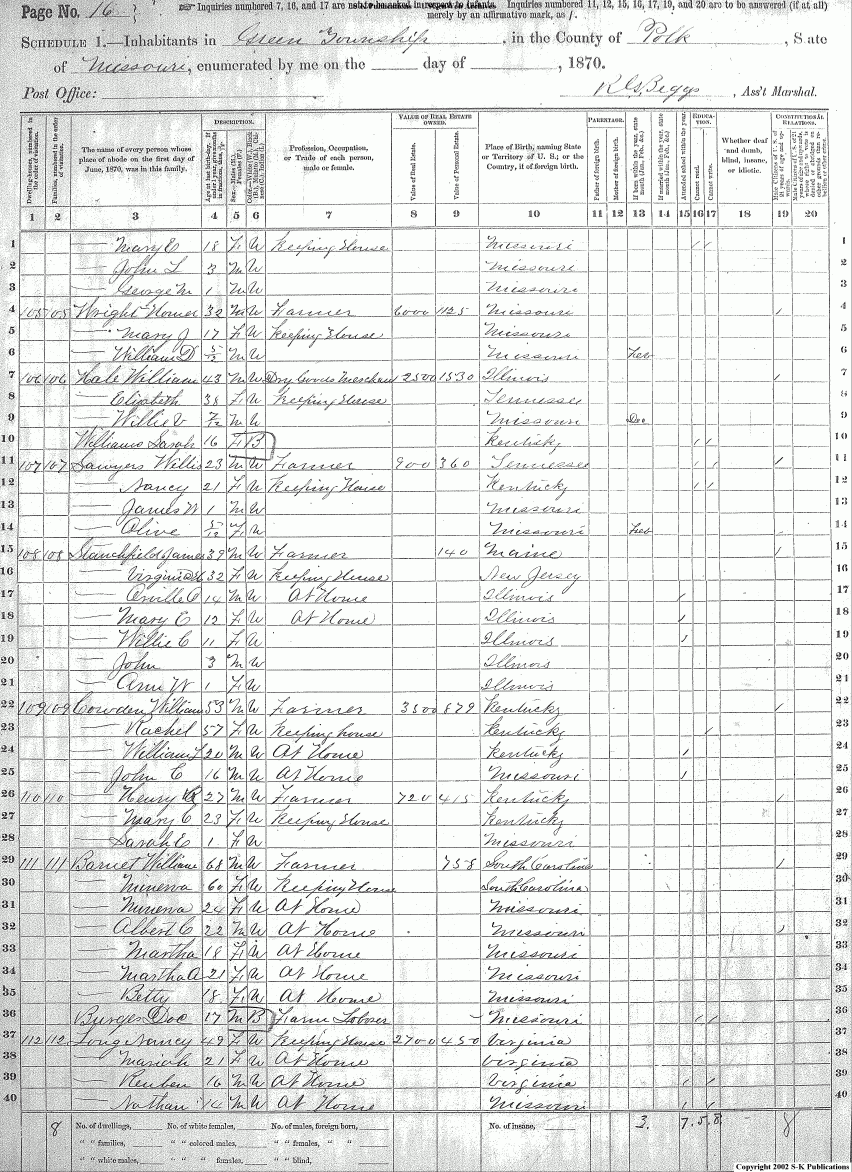 Page No. 16
Inquiries numbered 7, 16, and 17 are not to be asked in respect to infants. Inquiries numbered 11, 12, 15, 16, 17, 19, and 20 are to be answered (if at all) merely by an affirmative mark, as /.
SCHEDULE 1.—Inhabitants in Green Township, in the County of Polk, State
of Missouri, enumerated by me on the ____ day of ____, 1870.
Post Office: R G Beggs, Ass't Marshal.
DESCRIPTION. VALUE OF REAL ESTATE OWNED. PARENTAGE. EDUCATION. CONSTITUTIONAL RELATIONS.
Dwelling-houses, numbered in the order of visitation.
Families, numbered in the order of visitation.
The name of every person whose place of abode on the first day of June, 1870, was in this family.
Profession, Occupation, or Trade of each person, male or female.
Value of Real Estate.
Value of Personal Estate.
Place of Birth, naming State or Territory of U. S.; or the Country, if of foreign birth.
Father of foreign birth.
Mother of foreign birth.
Attended school within the year.
Cannot read.
Cannot write.
Whether deaf and dumb, blind, insane, or idiotic.
1 2 3 4 5 6 7 8 9 10 11 12 13 14 15 16 17 18 19 20
1 — Mary E 18 F W Keeping House Missouri / / 1
2 — John L 3 M W Missouri 2
3 — George M 1 M W Missouri 3
4 105 105 Wright Homer 32 M W Farmer 6000 1125 Missouri / 4
5 — Mary J 17 F W Keeping House Missouri 5
6 — William D 5/12 M W Missouri Feb 6
7 106 106 Hale William 43 M W Dry Goods Merchant 2500 1530 Illinois / 7
8 — Elizabeth 38 F W Keeping House Tennessee 8
9 — Willie V 7/12 M W Missouri Dec 9
10 Williams Sarah 16 F B Kentucky / / 10
11 107 107 Sawyers Willis 23 M W Farmer 900 360 Tennessee / / / 11
12 — Nancy 21 F W Keeping House Kentucky / / 12
13 — James W 1 M W Missouri 13
14 — Olive 5/12 F W Missouri Feb 14
15 108 108 Stanchfield James 39 M W Farmer 140 Maine / 15
16 — Virginia 32 F W Keeping House New Jersey 16
17 — Orville C 14 M W At Home Illinois / 17
18 — Mary E 12 F W At Home Illinois / 18
19 — Willie C 11 F W Illinois / 19
20 — John 3 M W Illinois 20
21 — Ann W 1 F W Illinois 21
22 109 109 Cowden William 53 M W Farmer 3500 879 Kentucky / 22
23 — Rachel 57 F W Keeping house Kentucky / 23
24 — William L 20 M W At Home Kentucky / 24
25 — John C 16 M W At Home Missouri / 25
26 110 110 — Henry 27 M W Farmer 720 415 Kentucky / 26
27 — Mary C 23 F W Keeping House Kentucky 27
28 — Sarah E 1 F W Missouri 28
29 111 111 Barnet William 68 M W Farmer 758 South Carolina / 29
30 — Minerva 60 F W Keeping House South Carolina 30
31 — Minerva 24 F W At Home Missouri 31
32 — Albert C 22 M W At Home Missouri / 32
33 — Martha 18 F W At Home Missouri 33
34 — Martha A 21 F W At Home Missouri 34
35 — Betty 18 F W At Home Missouri 35
36 Burges Doc 17 M B Farm Laborer Missouri / / 36
37 112 112 Long Nancy 49 F W Keeping House 2700 450 Virginia 37
38 — Mariah 21 F W At Home Virginia 38
39 — Reuben 16 M W At Home Virginia / / 39
40 — Nathan 14 M W At Home Missouri / / 40
8 No. of dwellings, No. of white females, No. of males, foreign born, No. of insane, 3. 7. 5. 8. 8
" " families, " " colored males, " " females, " "
" " white males, " " " females, " " blind,
Copyright 2002 S-K Publications